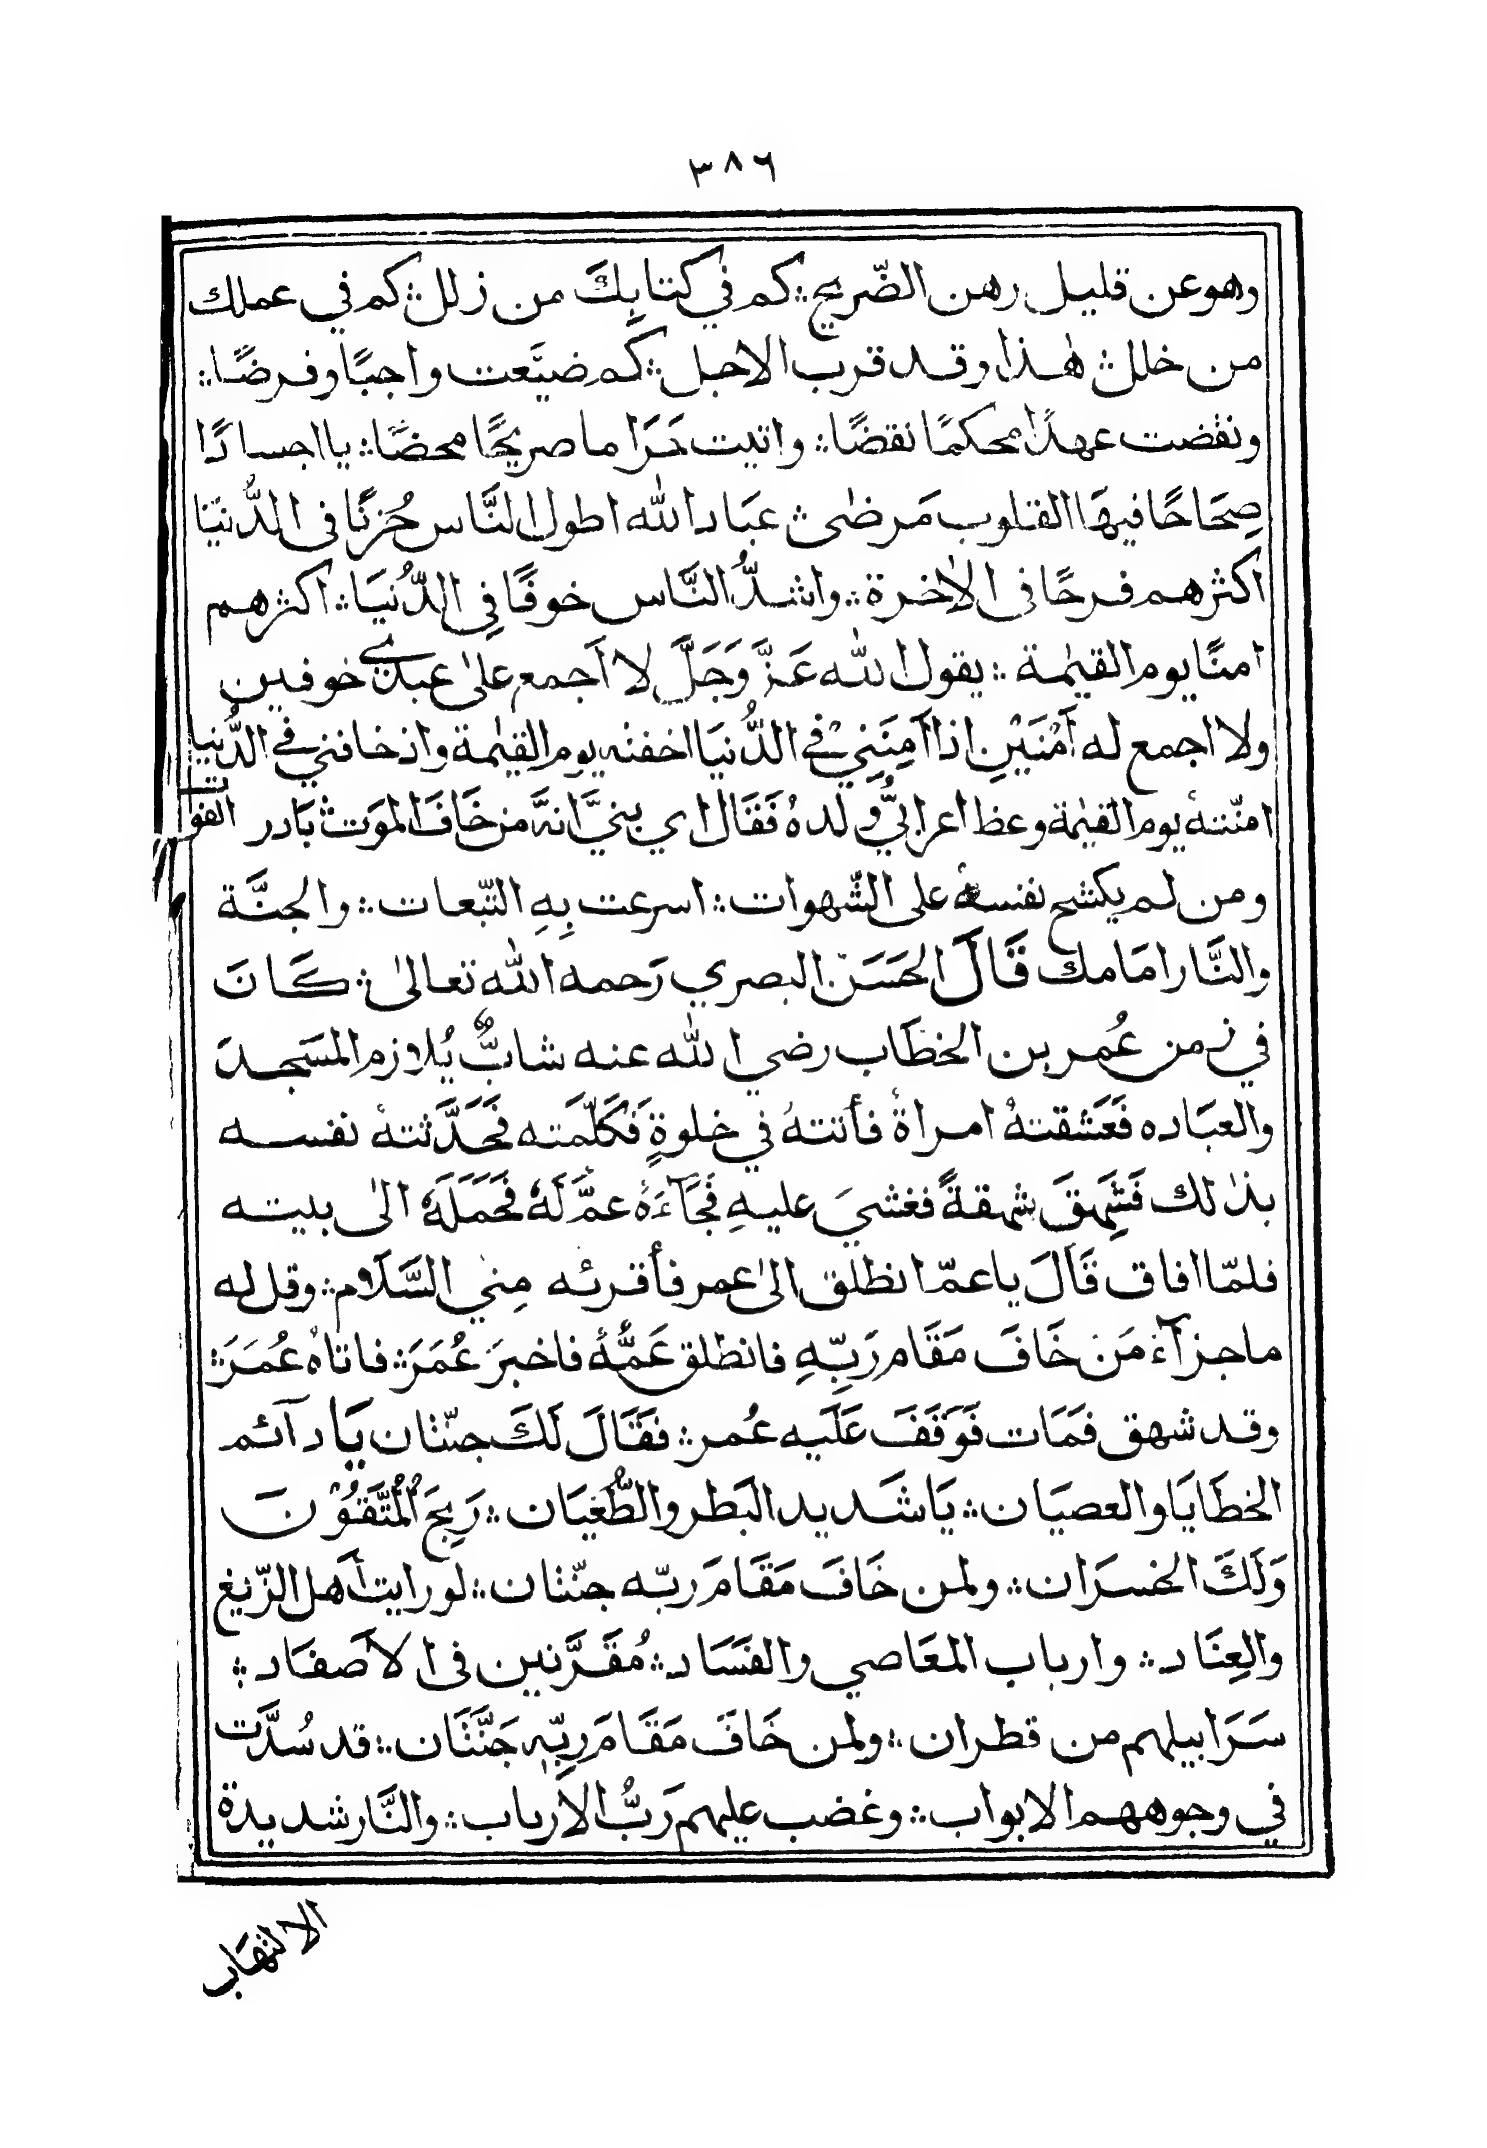 ٣٨٦
وهو عن قليل رهن الضّريح ؞ كم في كتابِكَ من زلل ؞ كم في عملك
من خلل ؞ هٰذا وقد قرب الاجل ؞ كم ضيّعت واجبًا وفرضًا ؞
ونقضت عهدًا محكمًا نقضًا ؞ واتيت حَرَاما صريحًا محضًا ؞ يا اجسادًا
صِحَاحًا فيهَا القلوب مَرضىٰ ؞ عبَاد الله اطول النَّاس حُزنًا في الدُّنيَا
اكثرهم فرحًا في الاٰخرة ؞ واشدُّ النَّاس خوفًا فِي الدُّنيَا ؞ اكثرهم
امنًا يوم القيٰمة ؞ يقول الله عَزَّ وَجَلَّ لا اَجمع علىٰ عبدي خوفين
ولا اجمع له اَمْنَيْنِ اذا اَمِنَنِيْ في الدُّنيَا اخفته يوم القيٰمة واذ خافني في الدُّنيا
امنّتهُ يوم القيٰمة وعظ اعرابيٌّ ولدهُ فَقَالَ اي بنيَّ انهَّ من خَافَ الموَت بَادر الفوت
ومن لم يكشح نفسهُ على الشّهوات ؞ اسرعت بِهِ التّبعات ؞ والجنَّة
والنَّار امَامك قَالَ الحَسَن البصري رَحمه الله تعالىٰ ؞ كَانَ
في زمن عُمر بن الخطَاب رضي الله عنه شابٌّ يُلازم المسَجدَ
والعبَاده فَعَشقتهُ امراةٌ فأتتهُ في خلوةٍ فَكَلّمَته فَحَدَّثتهُ نفسه
بذٰلك فَشَهَقَ شهقةً فغشيَ عليهِ فَجَآءَهُ عمَّ لَهُ فَحَمَلَهُ الىٰ بيته
فلمّا افاق قَالَ ياعمّ انطلق الىٰ عمر فأقرئه مِنّي السَّلَام ؞ وقل له
ماجزآءُ مَن خَافَ مَقَام رَبّهِ فانطلق عَمُّهُ فاخبرَ عُمَرَ ؞ فاتاهُ عُمَرَ ؞
وقد شهق فمَات فَوَقَفَ عَلَيه عُمر ؞ فقَالَ لَكَ جنّتان يَا دآئم
الخطَايَا والعصيَان ؞ يَا شَديد البَطر والطُّغيَان ؞ رَبحَ الْمُتَّقُوْنَ
وَلَكَ الخسرَان ؞ ولمن خَافَ مَقَامَ ربّه جنّتان ؞ لو رايت اَهل الزّيغ
والعِنَاد ؞ وارباب المعَاصي والفسَاد ؞ مُقَرَّنين في الاَصفَاد ؞
سَرَابيلهم من قطران ؞ ولمن خَافَ مَقَامَ ربِّه جَنَّتَان ؞ قد سُدَّت
في وجوههم الابواب ؞ وغضب عليهم رَبُّ الاَرباب ؞ والنَّار شديدة
الالتهَاب